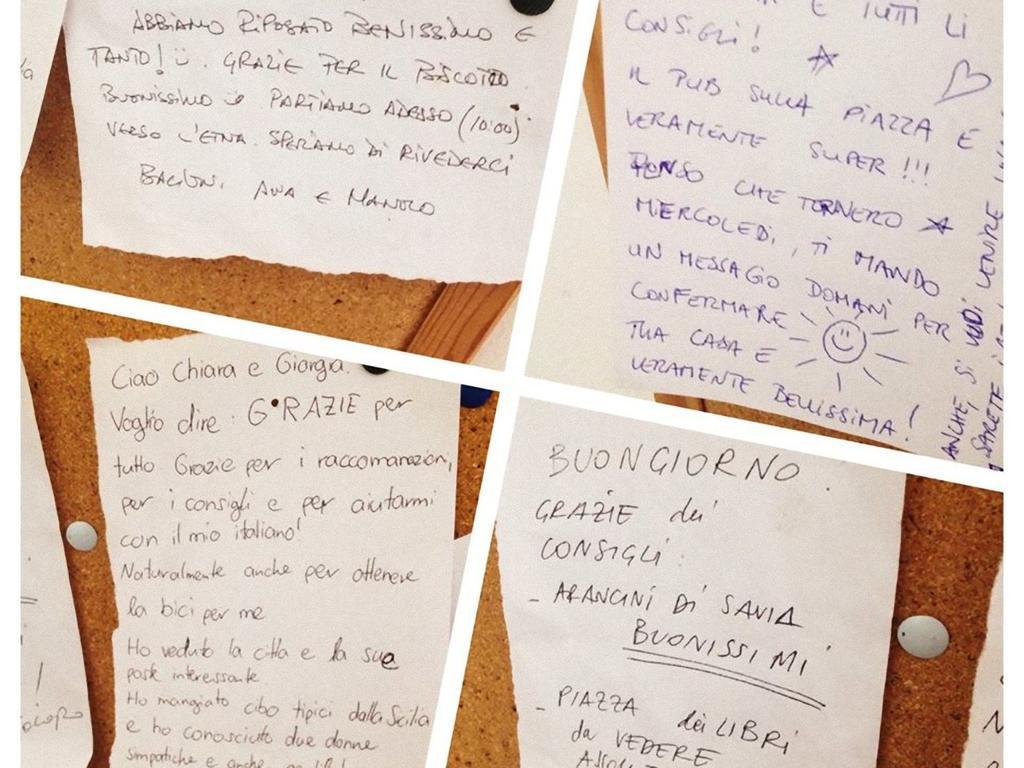 ABBIAMO RIPOSATO BENISSIMO E
TANTO! GRAZIE PER IL BISCOTTO
BUONISSIMO PARTIAMO ADESSO (10:00)
VERSO L'ETNA. SPERIAMO DI RIVEDERCI
BACIONI, ANA E MANOLO
E TUTTI LI
CONSIGLI!
IL PUB SULLA PIAZZA E
VERAMENTE SUPER!!!
PENSO CHE TORNERO
MIERCOLEDI, TI MANDO
UN MESSAGIO DOMANI PER
CONFERMARE
TUA CASA E
VERAMENTE BELLISSIMA!
ANCHE, SI VUOI VENIRE
SARETE
Ciao Chiara e Giorgia.
Voglio dire: GRAZIE per
tutto Grazie per i raccomanazioni,
per i consigli e per aiutarmi
con il mio italiano!
Naturalmente anche per ottenere
la bici per me
Ho veduto la citta e la sue
parte interessante.
Ho mangiato cibo tipici dalla Sicilia
e ho conosciuto due donne
simpatiche e anche
BUONGIORNO.
GRAZIE dei
CONSIGLI:
- ARANCINI DI SAVIA
BUONISSIMI
- PIAZZA dei LIBRI
da VEDERE